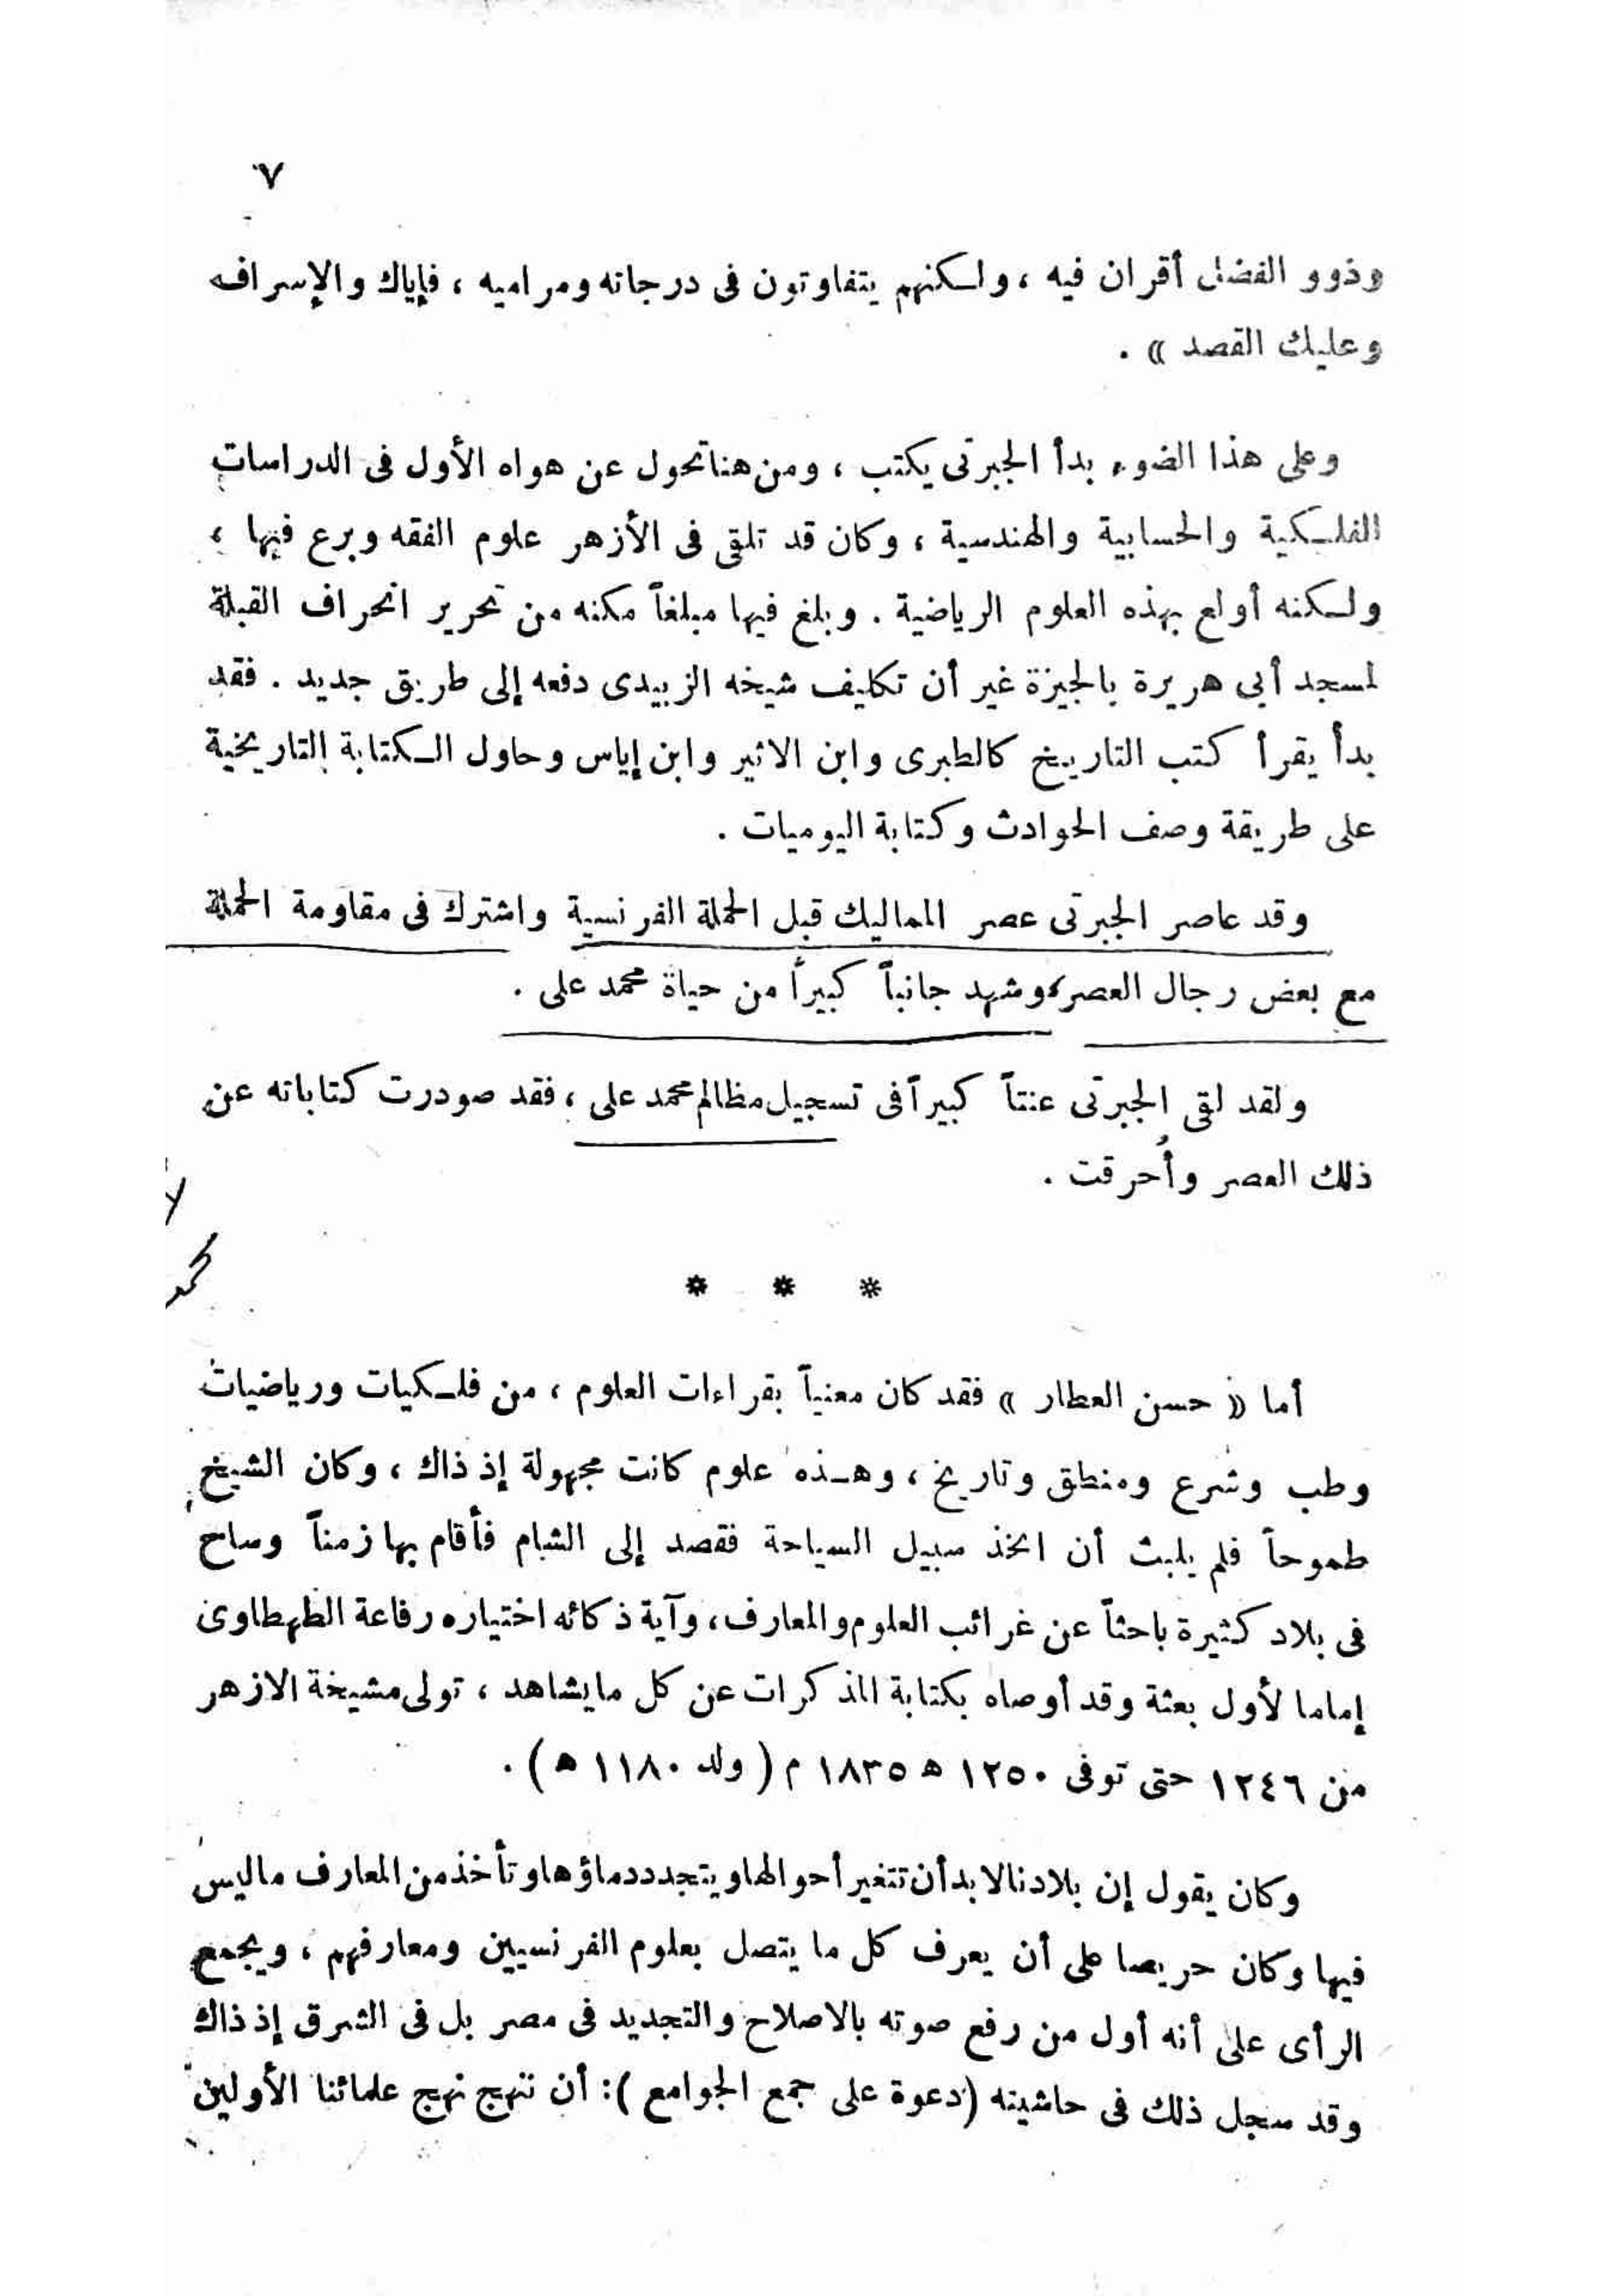 ٧
وذوو الفضل أقران فيه ، ولكنهم يتفاوتون فى درجاته ومراميه ، فإياك والإسراف
وعليك القصد » .
وعلى هذا الضوء بدأ الجبرتى يكتب ، ومن هنا تحول عن هواه الأول فى الدراسات
الفلكية والحسابية والهندسية ، وكان قد تلقى فى الأزهر علوم الفقه وبرع فيها ،
ولكنه أولع بهذه العلوم الرياضية . وبلغ فيها مبلغاً مكنه من تحرير انحراف القبلة
لمسجد أبى هريرة بالجيزة غير أن تكليف شيخه الزبيدى دفعه إلى طريق جديد . فقد
بدأ يقرأ كتب التاريخ كالطبرى وابن الاثير وابن إياس وحاول الكتابة التاريخية
على طريقة وصف الحوادث وكتابة اليوميات .
وقد عاصر الجبرتى عصر المماليك قبل الحملة الفرنسية واشترك فى مقاومة الحملة
مع بعض رجال العصر، وشهد جانباً كبيراً من حياة محمد على .
ولقد لقى الجبرتى عنتاً كبيراً فى تسجيل مظالم محمد على ، فقد صودرت كتاباته عن
ذلك العصر وأُحرقت .
* * *
أما « حسن العطار » فقد كان معنياً بقراءات العلوم ، من فلكيات ورياضيات
وطب وشرع ومنطق وتاريخ ، وهذه علوم كانت مجهولة إذ ذاك ، وكان الشيخ
طموحاً فلم يلبث أن اتخذ سبيل السياحة فقصد إلى الشام فأقام بها زمناً وساح
فى بلاد كثيرة باحثاً عن غرائب العلوم والمعارف، وآية ذكائه اختياره رفاعة الطهطاوى
إماما لأول بعثة وقد أوصاه بكتابة المذكرات عن كل مايشاهد ، تولى مشيخة الازهر
من ١٢٤٦ حتى توفى ١٢٥٠ ه ١٨٣٥ م ( ولد ١١٨٠ ه ) .
وكان يقول إن بلادنا لابد أن تتغير أحوالها ويتجدد دماؤها وتأخذ من المعارف ماليس
فيها وكان حريصا على أن يعرف كل ما يتصل بعلوم الفرنسيين ومعارفهم ، ويجمع
الرأى على أنه أول من رفع صوته بالاصلاح والتجديد فى مصر بل فى الشرق إذ ذاك
وقد سجل ذلك فى حاشيته (دعوة على جمع الجوامع ): أن ننهج نهج علمائنا الأولين